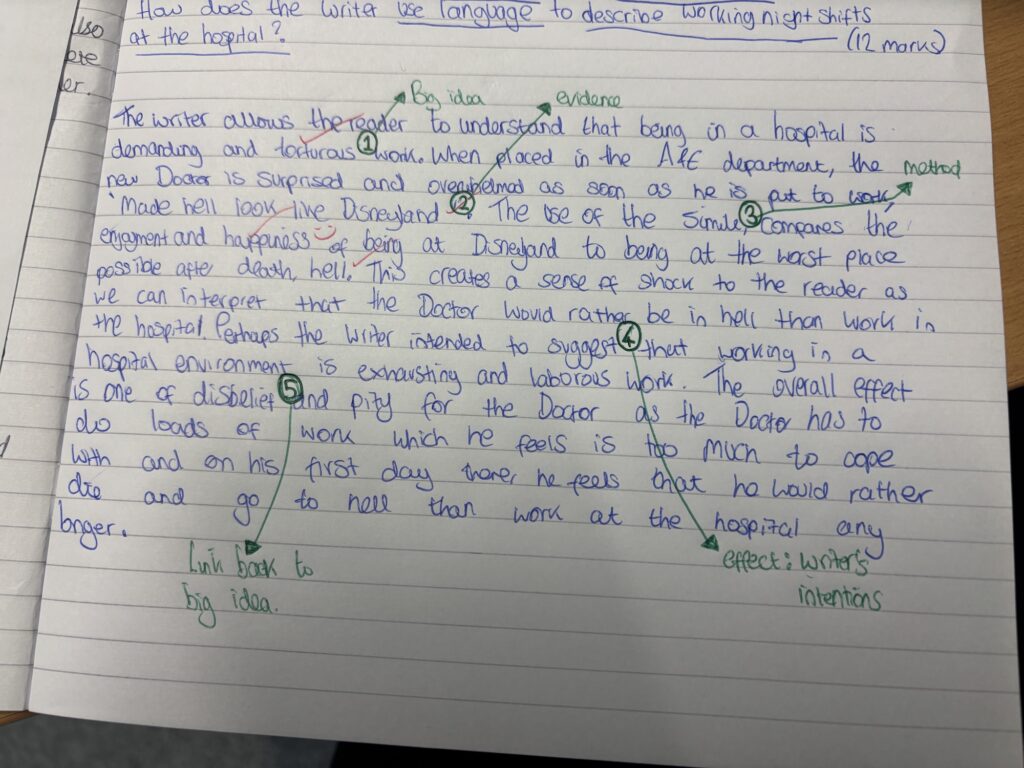 How does the writer use language to describe working night shifts
at the hospital? (12 marks)
er.
Big idea
evidence
The writer allows the reader to understand that being in a hospital is
demanding and torturous ① work. When placed in the A&E department, the
method
new Doctor is surprised and overwhelmed as soon as he is put to work,
'Made hell look like Disneyland ②'. The use of the Simile ③ compares the
enjoyment and happiness of being at Disneyland to being at the worst place
possible after death, hell. This creates a sense of shock to the reader as
we can interpret that the Doctor would rather be in hell than work in
the hospital. Perhaps the writer intended to suggest ④ that working in a
hospital environment is exhausting and laborous work. The overall effect
is one of disbelief ⑤ and pity for the Doctor as the Doctor has to
do loads of work which he feels is too much to cope
with and on his first day there, he feels that he would rather
die and go to hell than work at the hospital any
longer.
Link back to
big idea.
effect: writer's
intentions